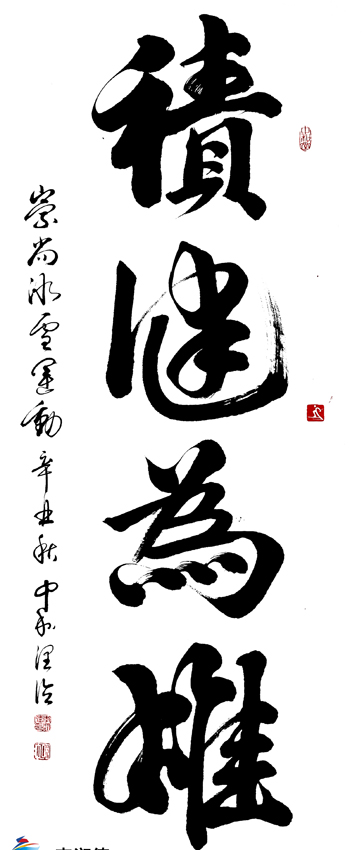 積健為雄
崇尚冰雪運動 辛丑秋 中和